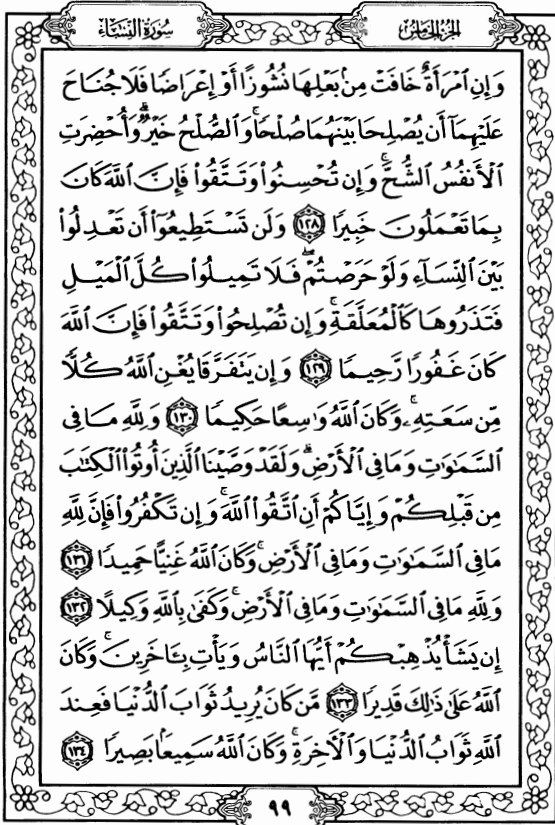 سُورَةُ النِّسَاءِ
الجُزْءُ الخَامِسُ
وَإِنِ ٱمۡرَأَةٌ خَافَتۡ مِنۢ بَعۡلِهَا نُشُوزًا أَوۡ إِعۡرَاضٗا فَلَا جُنَاحَ
عَلَيۡهِمَآ أَن يُصۡلِحَا بَيۡنَهُمَا صُلۡحٗاۚ وَٱلصُّلۡحُ خَيۡرٞۗ وَأُحۡضِرَتِ
ٱلۡأَنفُسُ ٱلشُّحَّۚ وَإِن تُحۡسِنُواْ وَتَتَّقُواْ فَإِنَّ ٱللَّهَ كَانَ
بِمَا تَعۡمَلُونَ خَبِيرٗا ١٢٨ وَلَن تَسۡتَطِيعُوٓاْ أَن تَعۡدِلُواْ
بَيۡنَ ٱلنِّسَآءِ وَلَوۡ حَرَصۡتُمۡۖ فَلَا تَمِيلُواْ كُلَّ ٱلۡمَيۡلِ
فَتَذَرُوهَا كَٱلۡمُعَلَّقَةِۚ وَإِن تُصۡلِحُواْ وَتَتَّقُواْ فَإِنَّ ٱللَّهَ
كَانَ غَفُورٗا رَّحِيمٗا ١٢٩ وَإِن يَتَفَرَّقَا يُغۡنِ ٱللَّهُ كُلّٗا
مِّن سَعَتِهِۦۚ وَكَانَ ٱللَّهُ وَٰسِعًا حَكِيمٗا ١٣٠ وَلِلَّهِ مَا فِي
ٱلسَّمَٰوَٰتِ وَمَا فِي ٱلۡأَرۡضِۗ وَلَقَدۡ وَصَّيۡنَا ٱلَّذِينَ أُوتُواْ ٱلۡكِتَٰبَ
مِن قَبۡلِكُمۡ وَإِيَّاكُمۡ أَنِ ٱتَّقُواْ ٱللَّهَۚ وَإِن تَكۡفُرُواْ فَإِنَّ لِلَّهِ
مَا فِي ٱلسَّمَٰوَٰتِ وَمَا فِي ٱلۡأَرۡضِۚ وَكَانَ ٱللَّهُ غَنِيًّا حَمِيدٗا ١٣١
وَلِلَّهِ مَا فِي ٱلسَّمَٰوَٰتِ وَمَا فِي ٱلۡأَرۡضِۚ وَكَفَىٰ بِٱللَّهِ وَكِيلًا ١٣٢
إِن يَشَأۡ يُذۡهِبۡكُمۡ أَيُّهَا ٱلنَّاسُ وَيَأۡتِ بِـَٔاخَرِينَۚ وَكَانَ
ٱللَّهُ عَلَىٰ ذَٰلِكَ قَدِيرٗا ١٣٣ مَّن كَانَ يُرِيدُ ثَوَابَ ٱلدُّنۡيَا فَعِندَ
ٱللَّهِ ثَوَابُ ٱلدُّنۡيَا وَٱلۡأٓخِرَةِۚ وَكَانَ ٱللَّهُ سَمِيعَۢا بَصِيرٗا ١٣٤
٩٩